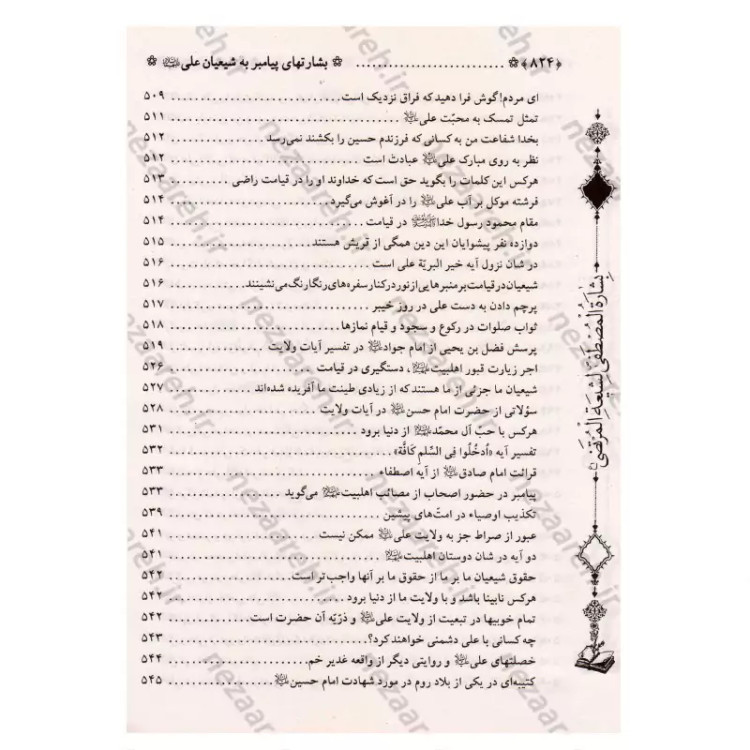 ﴿۸۲۴﴾ ............................ بشارتهای پیامبر به شیعیان علی
ای مردم! گوش فرا دهید که فراق نزدیک است ........................ ۵۰۹
تمثل تمسک به محبّت علی ........................ ۵۱۱
بخدا شفاعت من به کسانی که فرزندم حسین را بکشند نمی‌رسد ........ ۵۱۲
نظر به روی مبارک علی عبادت است ........................ ۵۱۲
هرکس این کلمات را بگوید حق است که خداوند او را در قیامت راضی ........ ۵۱۳
فرشته موکل بر آب علی را در آغوش می‌گیرد ........................ ۵۱۴
مقام محمود رسول خدا در قیامت ........................ ۵۱۴
دوازده نفر پیشوایان این دین همگی از قریش هستند ........................ ۵۱۵
در شان نزول آیه خیر البریّة علی است ........................ ۵۱۶
شیعیان در قیامت بر منبرهایی از نور در کنار سفره‌های رنگارنگ می‌نشینند ........ ۵۱۶
پرچم دادن به دست علی در روز خیبر ........................ ۵۱۷
ثواب صلوات در رکوع و سجود و قیام نمازها ........................ ۵۱۸
پرسش فضل بن یحیی از امام جواد در تفسیر آیات ولایت ........ ۵۱۹
اجر زیارت قبور اهلبیت، دستگیری در قیامت ........................ ۵۲۶
شیعیان ما جزئی از ما هستند که از زیادی طینت ما آفریده شده‌اند ........ ۵۲۷
سؤلاتی از حضرت امام حسن در آیات ولایت ........................ ۵۲۸
هرکس با حبّ آل محمّد از دنیا برود ........................ ۵۳۱
تفسیر آیه «اُدخُلُوا فِی السِّلمِ کَافَّة» ........................ ۵۳۲
قرائت امام صادق از آیه اصطفاء ........................ ۵۳۳
پیامبر در حضور اصحاب از مصائب اهلبیت می‌گوید ........ ۵۳۳
تکذیب اوصیاء در امت‌های پیشین ........................ ۵۳۹
عبور از صراط جز به ولایت علی ممکن نیست ........................ ۵۴۱
دو آیه در شان دوستان اهلبیت ........................ ۵۴۱
حقوق شیعیان ما بر ما از حقوق ما بر آنها واجب‌تر است ........ ۵۴۲
هرکس نابینا باشد و با ولایت ما از دنیا برود ........................ ۵۴۲
تمام خوبیها در تبعیت از ولایت علی و ذرّیّه آن حضرت است ........ ۵۴۲
چه کسانی با علی دشمنی خواهند کرد؟ ........................ ۵۴۳
خصلتهای علی و روایتی دیگر از واقعه غدیر خم ........................ ۵۴۴
کتیبه‌ای در یکی از بلاد روم در مورد شهادت امام حسین ........ ۵۴۵
بِشارَةُ الْمُصْطَفیٰ لِشیعَةِ الْمُرْتَضیٰ
nezaareh.ir